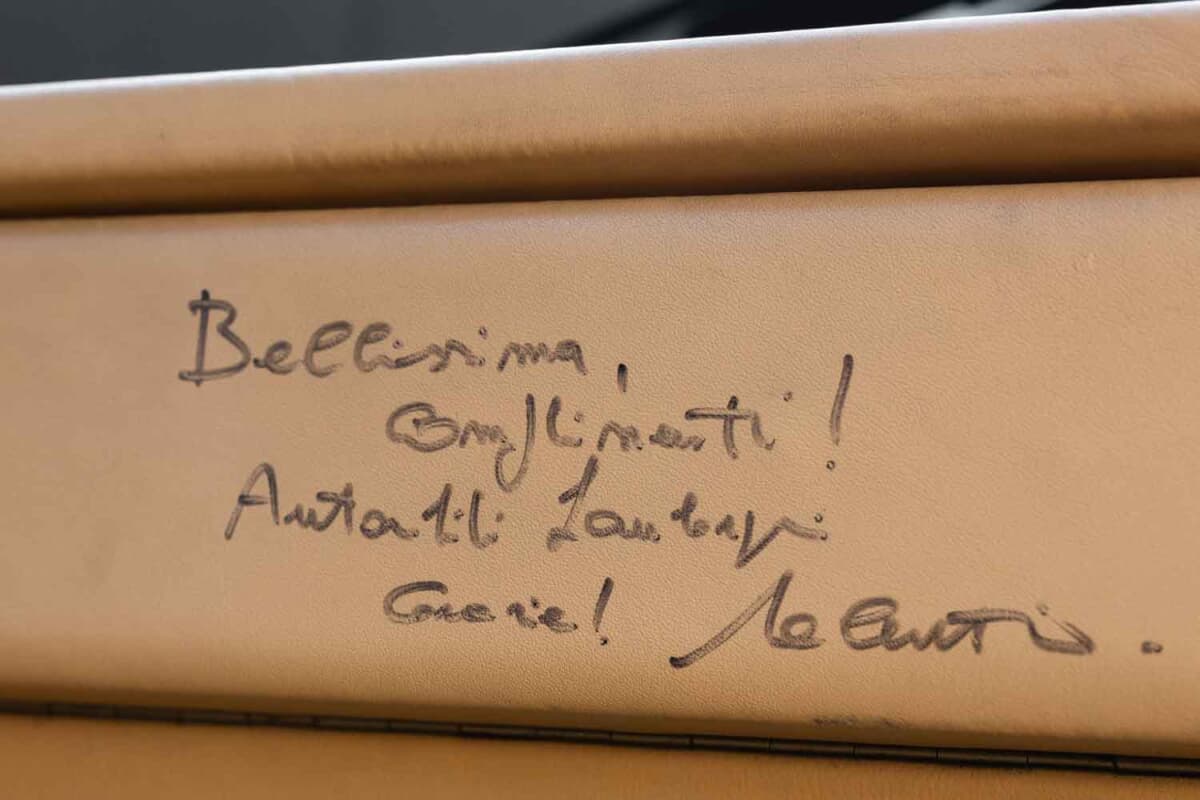 Bellissima,
Complimenti!
Automobili Lamborghini
Grazie!